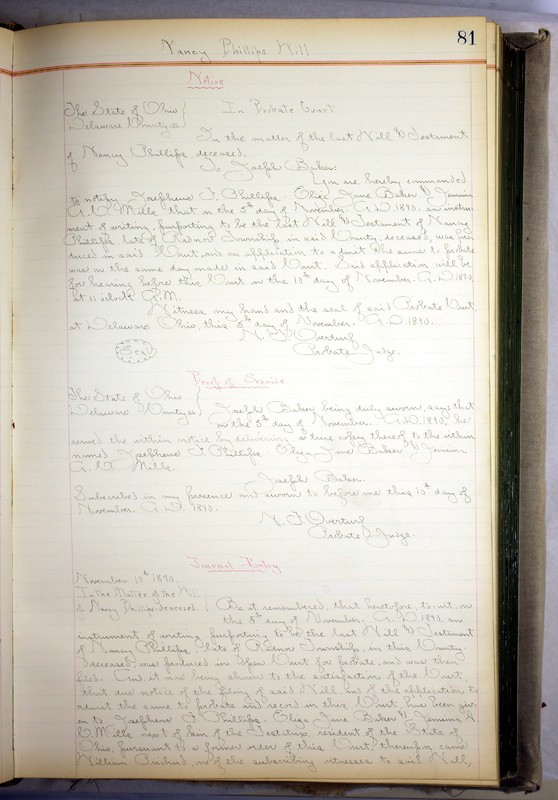 81
Nancy Phillips Will
Notice
The State of Ohio } In Probate Court
Delaware County ss
In the matter of the last Will & Testament
of Nancy Phillips, deceased.
To Joseph Baker:
You are hereby commanded
to notify Josephene F. Phillips, Eliza Jane Baker & Jemima
A. C. Mills, that on the 5th day of November A.D. 1890, an instru-
ment of writing, purporting to be the last Will & Testament of Nancy
Phillips, late of Radnor Township, in said County, deceased, was pro-
duced in said Court, and an application to admit the same to probate
was on the same day made in said Court. Said application will be
for hearing before this Court on the 10th day of November A.D. 1890,
at 11 o'clock A.M.
Witness my hand and the seal of said Probate Court,
at Delaware Ohio, this 5th day of November A.D. 1890.
N. F. Overturf
Seal
Probate Judge.
Proof of Service
The State of Ohio }
Delaware County ss Joseph Baker being duly sworn, says that
on the 5th day of November A.D. 1890, he
served the within notice by delivering a true copy thereof to the within
named Josephene F. Phillips, Eliza Jane Baker & Jemima
A. C. Mills.
Joseph Baker.
Subscribed in my presence and sworn to before me this 10th day of
November A.D. 1890.
N. F. Overturf
Probate Judge.
Journal Entry
November 10th 1890.
In the Matter of the Will
of Nancy Phillips deceased. } Be it remembered, that heretofore, to-wit: on
the 5th day of November A.D. 1890, an
instrument of writing, purporting to be the last Will & Testament
of Nancy Phillips, late of Radnor Township, in this County
deceased, was produced in open Court for probate, and was then
filed. And it now being shown to the satisfaction of the Court,
that due notice of the filing of said Will, and of the application to
admit the same to probate and record in this Court, has been giv-
en to Josephene F. Phillips, Eliza Jane Baker & Jemima A.
C. Mills next of kin of the Testatrix, resident of the State of
Ohio, pursuant to a former order of this Court, thereupon came
William Prichard, one of the subscribing witnesses to said Will,